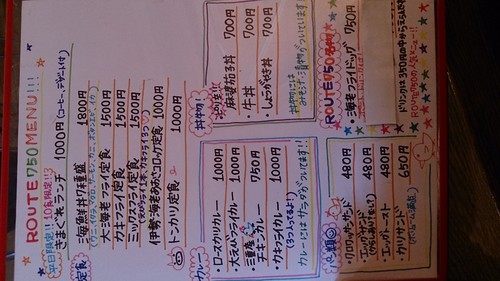 ROUTE750 MENU!!!!
平日限定!! 10食限定!!
きまぐれランチ 1000円 (コーヒー、デザート付)
定食
海鮮丼7種盛 1800円
大海老フライ定食 1500円
カキフライ定食 1500円
ミックスフライ定食 1500円
伊勢海老みそコロッケ定食 1000円
トンカツ定食 1000円
カレー
・ロースカツカレー 1000円
・大えびフライカレー 1000円
チキンカレー 750円
・カキフライカレー 1000円
(3つ入ってるよ!)
カレーにはサラダがついてます!!
丼物!
麻婆茄子丼 700円
・牛丼 700円
・しょうがやき丼 700円
丼物には
みそ汁・漬物がついています!
パン類
・コロッケサンド 480円
・エッグサンド 480円
・エッグトースト 480円
・カツサンド 650円
ROUTE750
・海老フライドッグ 750円
ドリンクは350円の中からえらんで